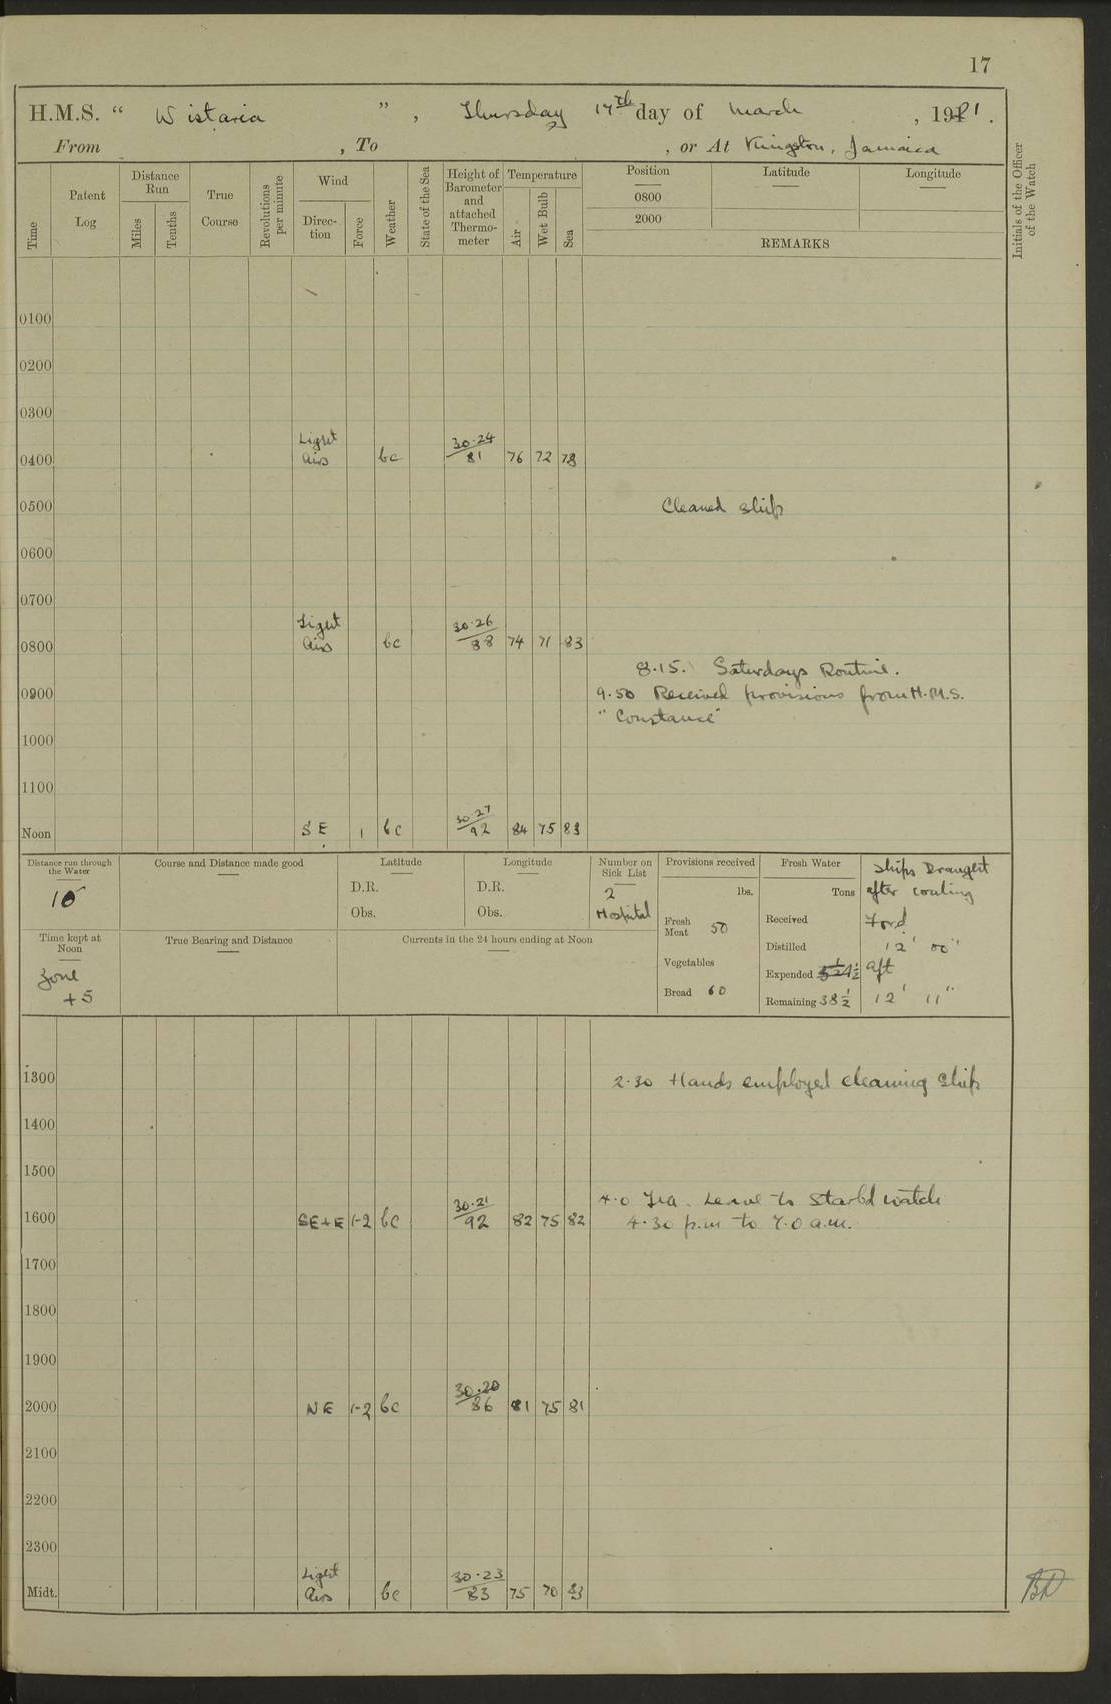 17
H.M.S. " Wistaria ", Thursday 17th day of March, 1921.
From , To , or At Kingston, Jamaica
Time
Patent Log
Distance Run
Miles
Tenths
True Course
Revolutions per minute
Wind
Direction
Force
Weather
State of the Sea
Height of Barometer and attached Thermometer
Temperature
Air
Wet Bulb
Sea
Position
0800
2000
Latitude
Longitude
REMARKS
Initials of the Officer of the Watch
0100
0200
0300
0400 Light airs bc 30.24/81 76 72 78
0500 Cleaned ship
0600
0700
0800 Light airs bc 30.26/88 74 71 83
8.15. Saturdays Routine.
0900 9.50 Received provisions from H.M.S.
"Constance"
1000
1100
Noon SE 1 bc 30.27/92 84 75 83
Distance run through the Water
Course and Distance made good
Latitude
D.R.
Obs.
Longitude
D.R.
Obs.
Number on Sick List
2
Hospital
Provisions received
lbs.
Fresh Meat 50
Vegetables
Bread 60
Fresh Water
Tons
Received
Distilled
Expended 4½
Remaining 38½
Ships Draught
after coaling
Ford
12' 00"
aft
12' 11"
Time kept at Noon
Zone
+5
True Bearing and Distance
Currents in the 24 hours ending at Noon
1300 2.30 Hands employed cleaning ship
1400
1500
4.0 Tea. Leave to Starbd watch
1600 SE+E 1-2 bc 30.21/92 82 75 82 4.30 p.m to 7.0 a.m.
1700
1800
1900
2000 NE 1-2 bc 30.20/86 81 75 81
2100
2200
2300
Midt. Light airs bc 30.23/83 75 70 83